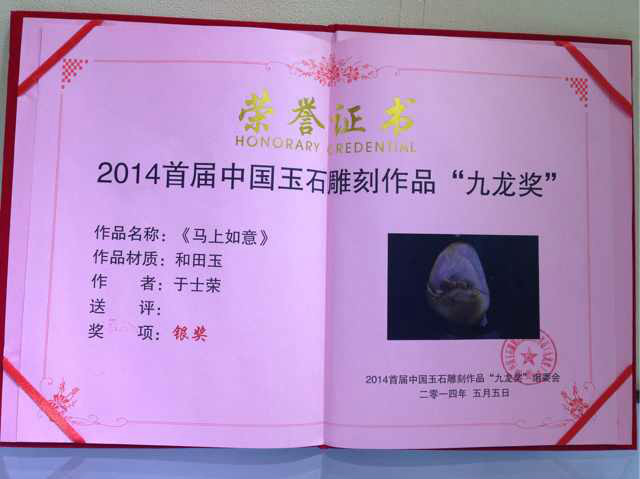 荣誉证书
HONORARY CREDENTIAL
2014首届中国玉石雕刻作品“九龙奖”
作品名称：《马上如意》
作品材质：和田玉
作　　者：于士荣
送　　评：
奖　　项：银奖
2014首届中国玉石雕刻作品“九龙奖”组委会
二零一四年 五月五日